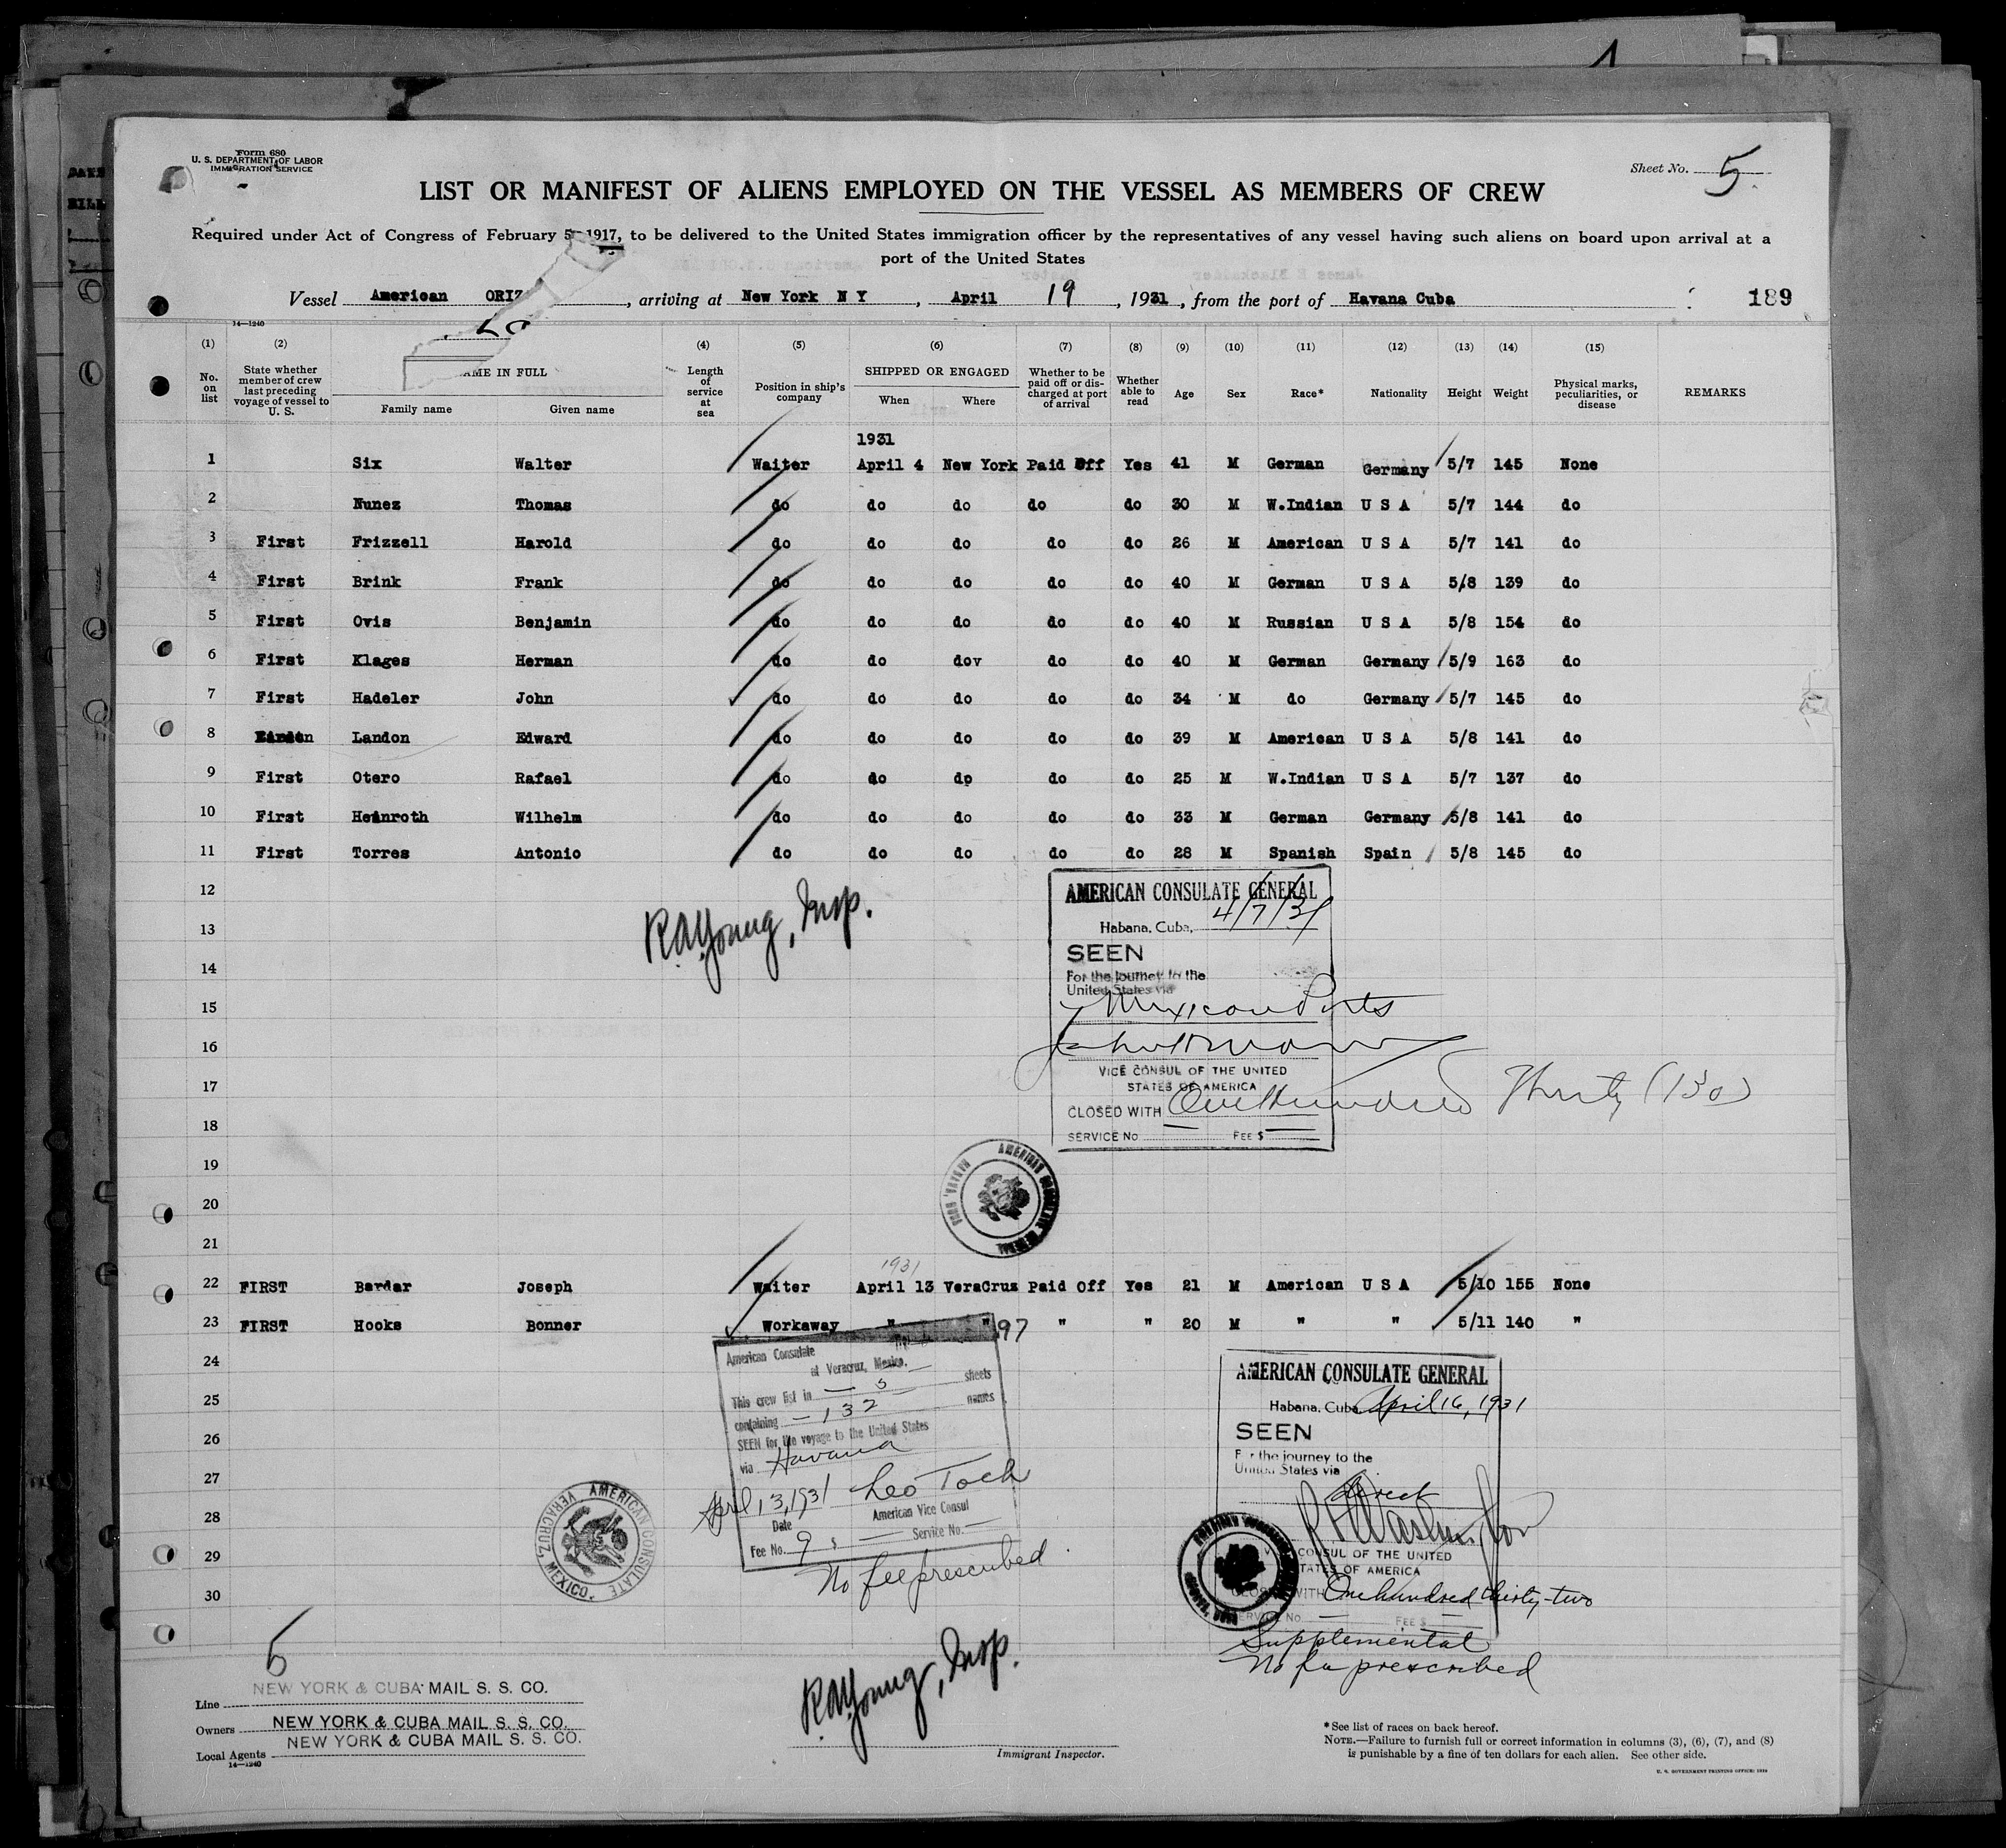 Form 680
U. S. DEPARTMENT OF LABOR
IMMIGRATION SERVICE
Sheet No. 5
LIST OR MANIFEST OF ALIENS EMPLOYED ON THE VESSEL AS MEMBERS OF CREW
Required under Act of Congress of February 5, 1917, to be delivered to the United States immigration officer by the representatives of any vessel having such aliens on board upon arrival at a
port of the United States
Vessel American ORIZ , arriving at New York N Y , April 19 , 1931 , from the port of Havana Cuba
189
14—1240
(1) (2) (4) (5) (6) (7) (8) (9) (10) (11) (12) (13) (14) (15)
No. on list State whether member of crew last preceding voyage of vessel to U. S. AME IN FULL Family name Given name Length of service at sea Position in ship's company SHIPPED OR ENGAGED When Where Whether to be paid off or discharged at port of arrival Whether able to read Age Sex Race* Nationality Height Weight Physical marks, peculiarities, or disease REMARKS
1931
1 Six Walter Waiter April 4 New York Paid Off Yes 41 M German Germany 5/7 145 None
2 Nunez Thomas do do do do do 30 M W.Indian U S A 5/7 144 do
3 First Frizzell Harold do do do do do 26 M American U S A 5/7 141 do
4 First Brink Frank do do do do do 40 M German U S A 5/8 139 do
5 First Ovis Benjamin do do do do do 40 M Russian U S A 5/8 154 do
6 First Klages Herman do do dov do do 40 M German Germany 5/9 163 do
7 First Hadeler John do do do do do 34 M do Germany 5/7 145 do
8 Landon Edward do do do do do 39 M American U S A 5/8 141 do
9 First Otero Rafael do do do do do 25 M W.Indian U S A 5/7 137 do
10 First Heinroth Wilhelm do do do do do 33 M German Germany 5/8 141 do
11 First Torres Antonio do do do do do 28 M Spanish Spain 5/8 145 do
12
13
14
15
16
17
18
19
20
21
RAYoung, Insp.
AMERICAN CONSULATE GENERAL
Habana, Cuba, 4/7/31
SEEN
For the journey to the
United States via
Mexican Ports
VICE CONSUL OF THE UNITED
STATES OF AMERICA
CLOSED WITH One Hundred Thirty (130)
SERVICE No FEE $
1931
22 FIRST Bardar Joseph Waiter April 13 VeraCruz Paid Off Yes 21 M American U S A 5/10 155 None
23 FIRST Hooks Bonner Workaway " " " " 20 M " " 5/11 140 "
97
24
25
26
27
28
29
30
American Consulate
at Veracruz, Mexico.
This crew list in 5 sheets
containing 132 names
SEEN for the voyage to the United States
via Havana
April 13, 1931 Leo Toch
Date American Vice Consul
Fee No. 9 $ Service No.
No fee prescribed
AMERICAN CONSULATE VERACRUZ, MEXICO.
AMERICAN CONSULATE GENERAL
Habana, Cuba April 16, 1931
SEEN
For the journey to the
United States via
direct
CONSUL OF THE UNITED
STATES OF AMERICA
CLOSED WITH One hundred thirty-two
SERVICE No. FEE $
Supplemental
No fee prescribed
5
Line NEW YORK & CUBA MAIL S. S. CO.
Owners NEW YORK & CUBA MAIL S. S. CO.
Local Agents NEW YORK & CUBA MAIL S. S. CO.
14—1240
RAYoung, Insp.
Immigrant Inspector.
*See list of races on back hereof.
NOTE.—Failure to furnish full or correct information in columns (3), (6), (7), and (8)
is punishable by a fine of ten dollars for each alien. See other side.